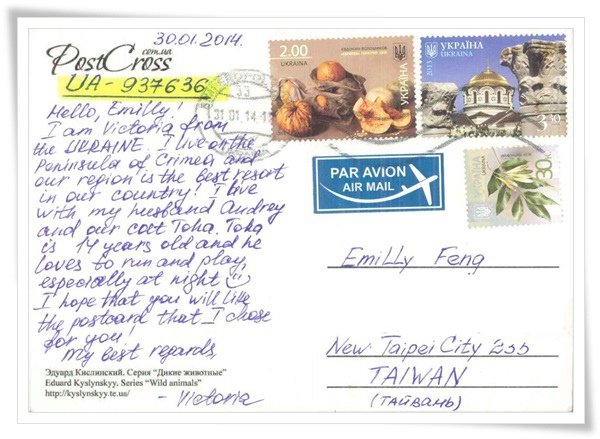 30.01.2014.
PostCross
com.ua
UA-937636
Hello, Emilly!
I am Victoria from
the UKRAINE. I live on the
Peninsula of Crimea and
our region is the best resort
in our country! I live
with my husband Audrey
and our cat Toha. Toha
is 14 years old and he
loves to run and play,
especially at night
I hope that you will like
the postcard that I chose
for you!
My best regards,
- Victoria
Эдуард Кислинский. Серия “Дикие животные”
Eduard Kyslynskyy. Series “Wild animals”
http://kyslynskyy.te.ua/
2.00
UKRAINE
УКРАЇНА
31.01.14-1
33
УКРАЇНА
UKRAINE
2013
3.30
30к
PAR AVION
AIR MAIL
Emilly Feng
New Taipei City 235
TAIWAN
(ТАЙВАНЬ)